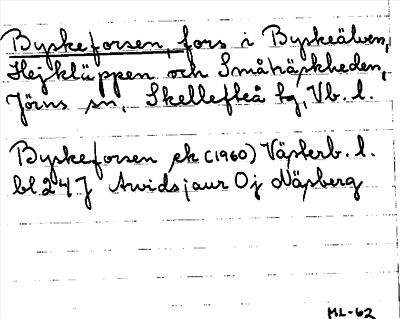 Byskeforsen, fors i Byskeälven,
Hejkläppen och Småträskheden,
Jörns sn, Skellefteå tg, Vb. l.
Byskeforsen ek (1960) Västerb. l.
bl 24 J Arvidsjaur Oj Näsberg
ML-62